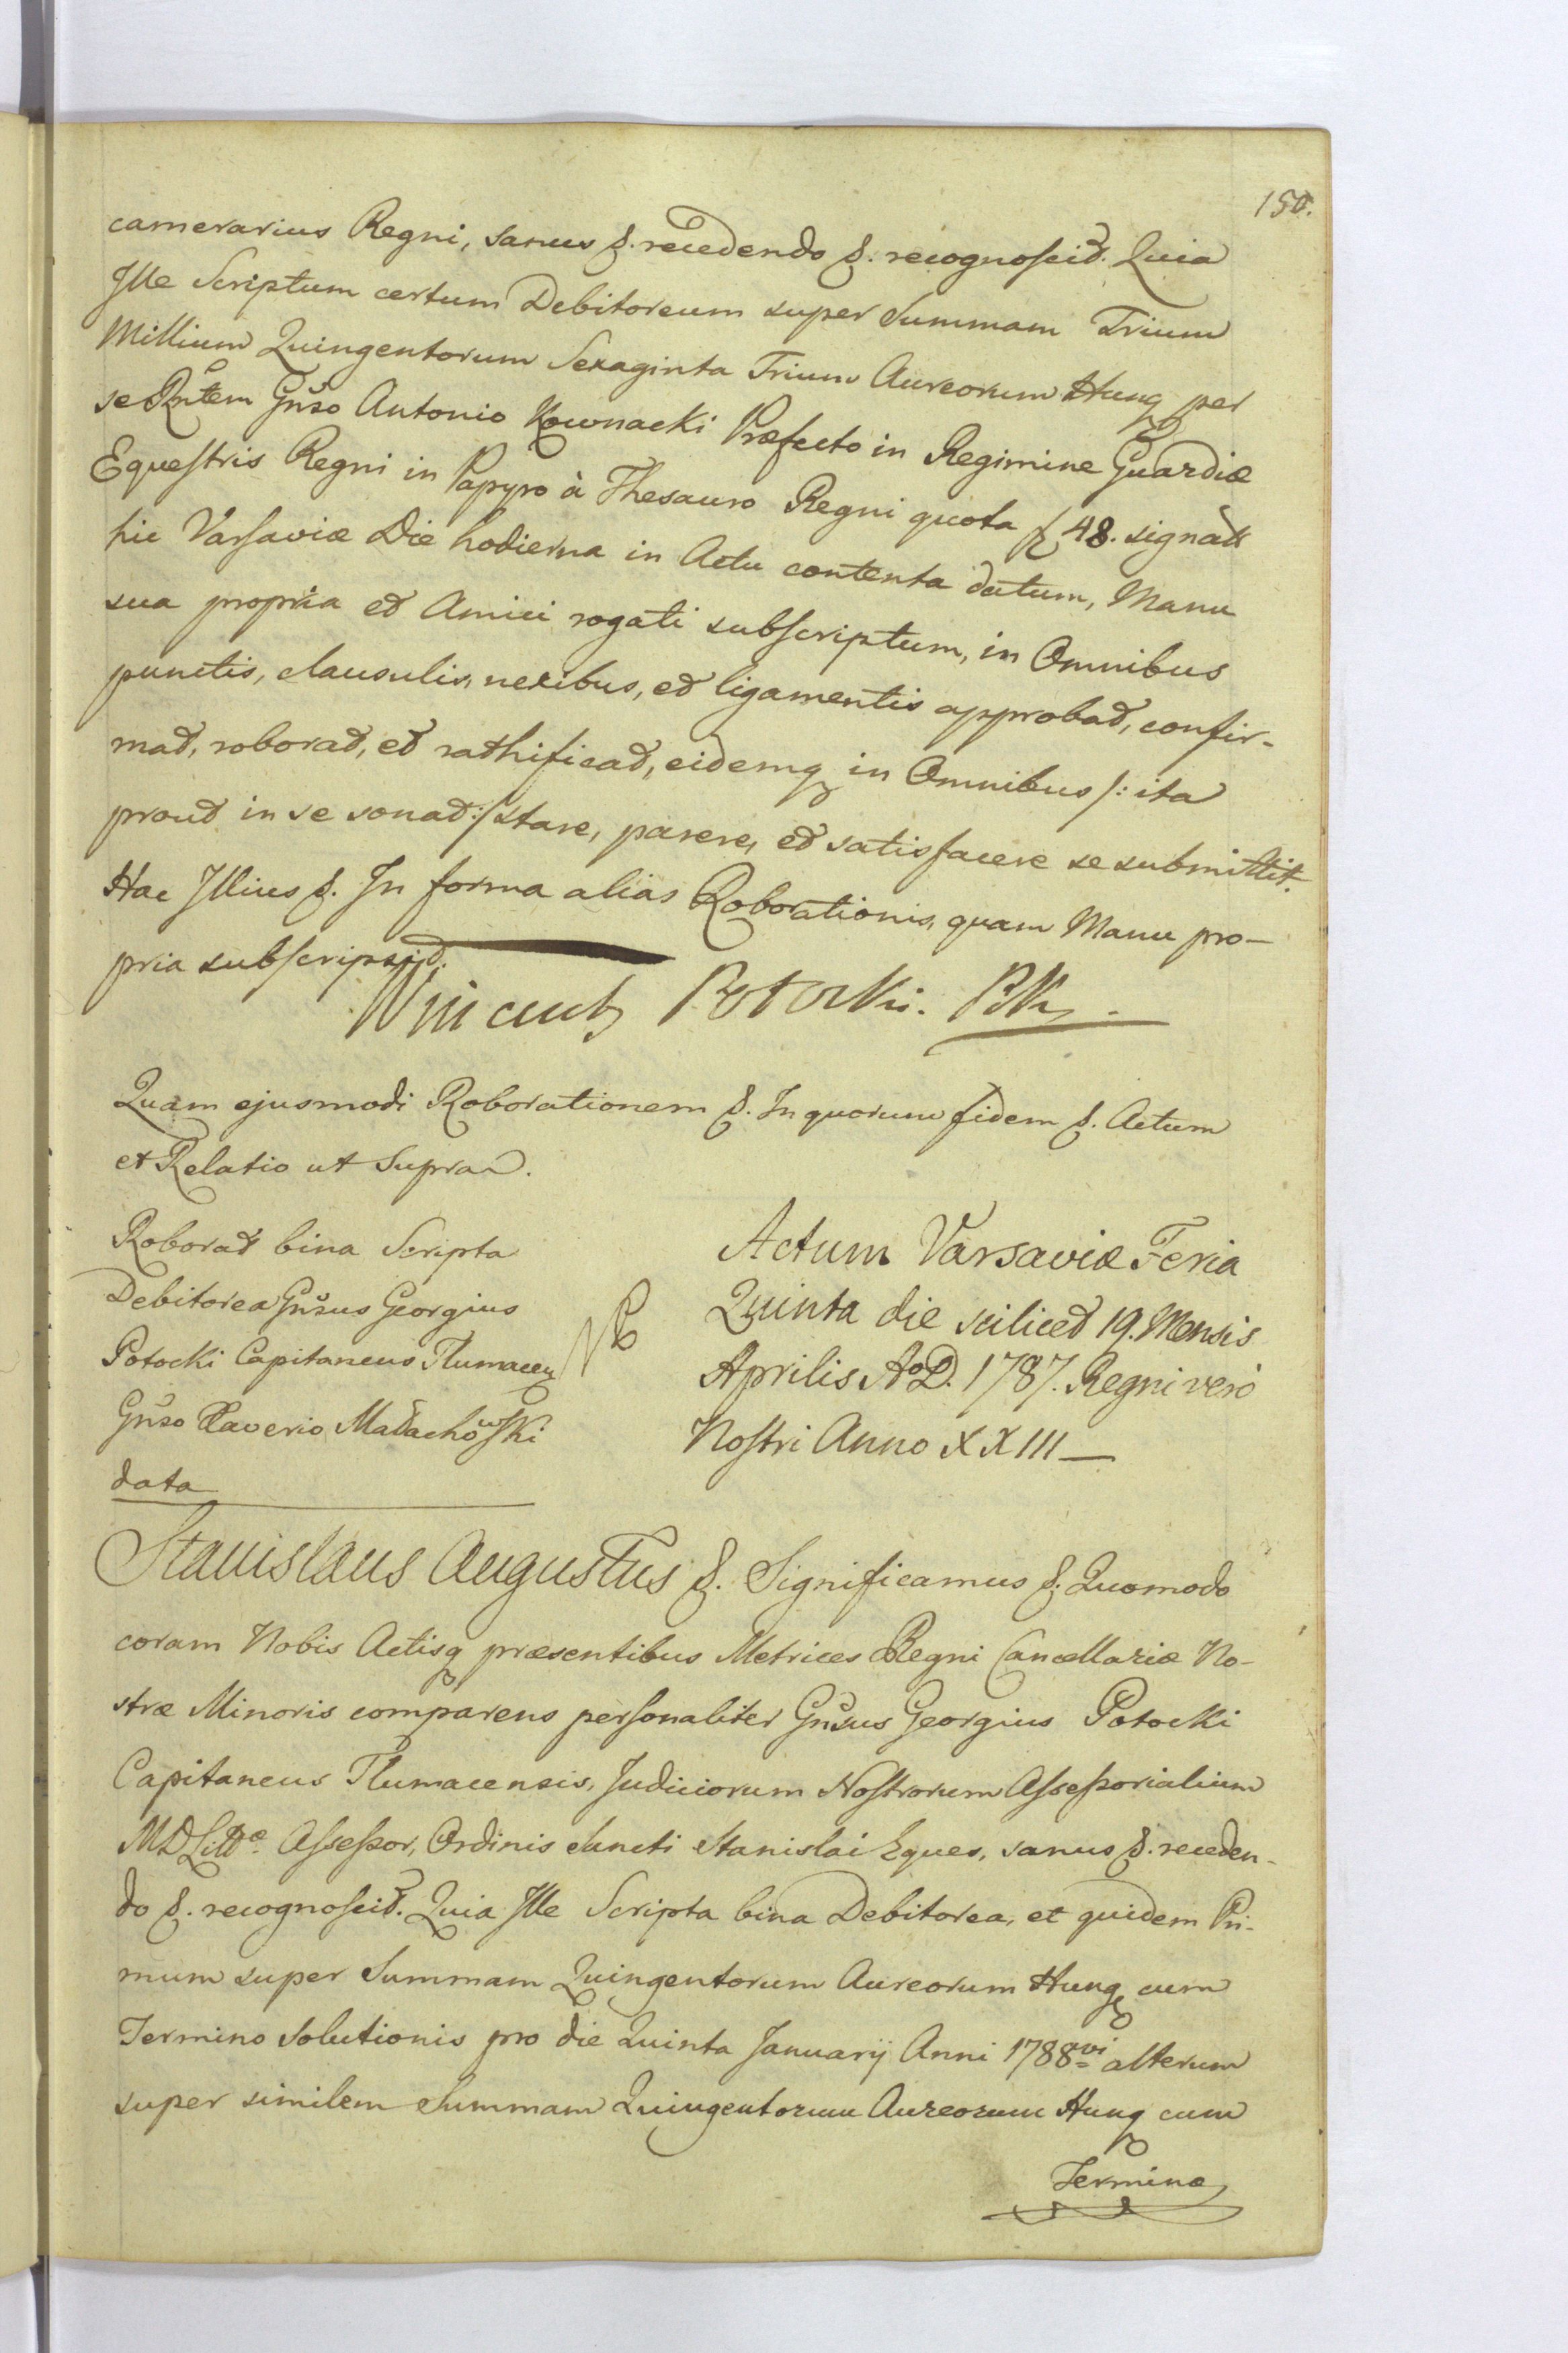 150.
camerarius Regni, sanus &. recedendo &. recognoscit. Quia
Ille Scriptum certum Debitoreum super Summam Trium
Millium Quingentorum Sexaginta Trium Aureorum Hung per
se Rntem Gnso Antonio Kownacki Præfecto in Regimine Guardiæ
Equestris Regni in Papyro à Thesauro Regni quota f 48. signat
hic Varsaviæ Die hodierna in Actu contenta datum, Manu
sua propria et Amici rogati subscriptum, in Omnibus
punctis, clausulis, nexibus, et ligamentis approbat, confir-
mat, roborat, et rathificat, eidemq in Omnibus /: ita
prout in se sonat :/ stare, parere, et satisfacere se submittit.
Hac Illius &. In forma alias Roborationis, quam Manu pro-
pria subscripsit.
Wincenty Potocki. PK
Quam ejusmodi Roborationem &. In quorum fidem &. Actum
et Relatio ut Supra.
Roborat bina Scripta
Debitorea Gnsus Georgius
Potocki Capitaneus Tlumacen
Gnso Xaverio Małachowski
data
NB
Actum Varsaviæ Feria
Quinta die scilicet 19. Mensis
Aprilis AoD. 1787. Regni vero
Nostri Anno XXIII —
Stanislaus Augustus &. Significamus &. Quomodo
coram Nobis Actisq præsentibus Metrices Regni Cancellariæ No-
stræ Minoris comparens personaliter Gnsus Georgius Potocki
Capitaneus Tlumacensis, Judiciorum Nostrorum Assessorialium
MD Littæ Assessor, Ordinis Sancti Stanislai Eques, sanus &. receden-
do &. recognoscit. Quia Ille Scripta bina Debitorea, et quidem Pri-
mum super Summam Quingentorum Aureorum Hung cum
Termino Solutionis pro die Quinta Januarij Anni 1788vi alterum
super similem Summam Quingentorum Aureorum Hung cum
Termino